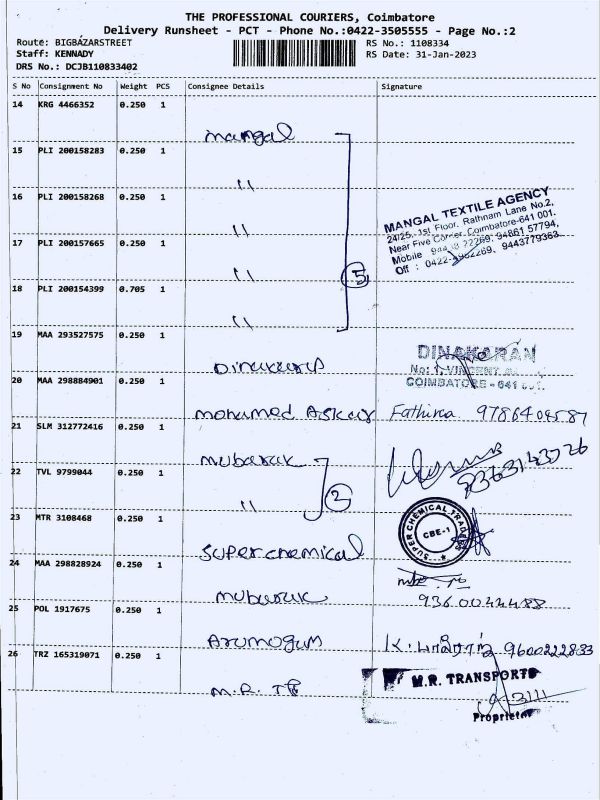 THE PROFESSIONAL COURIERS, Coimbatore
Delivery Runsheet - PCT - Phone No.:0422-3505555 - Page No.:2
Route: BIGBAZARSTREET
Staff: KENNADY
DRS No.: DCJB110833402
RS No.: 1108334
RS Date: 31-Jan-2023
S No Consignment No Weight PCS Consignee Details Signature
14 KRG 4466352 0.250 1 mangal
15 PLI 200158283 0.250 1 "
16 PLI 200158268 0.250 1 "
17 PLI 200157665 0.250 1 "
18 PLI 200154399 0.705 1 "
5
MANGAL TEXTILE AGENCY
24/25, 1st Floor, Rathnam Lane No.2,
Near Five Corner, Coimbatore-641 001.
Mobile 22269, 94861 57794,
Off : 9443779363
19 MAA 293527575 0.250 1
DINAKARAN
No: 1, VINCENT
COIMBATORE - 641
20 MAA 298884901 0.250 1 mohamed Askar Fathima
21 SLM 312772416 0.250 1 mubaruk
22 TVL 9799044 0.250 1 "
2
23 MTR 3108468 0.250 1 super chemical
SUPER CHEMICAL TRADERS
CBE-1
24 MAA 298828924 0.250 1 mubaruk
9360044488
25 POL 1917675 0.250 1 Arumogum K. 9600222833
26 TRZ 165319071 0.250 1 M.R.
M.R. TRANSPORTS
Proprietor